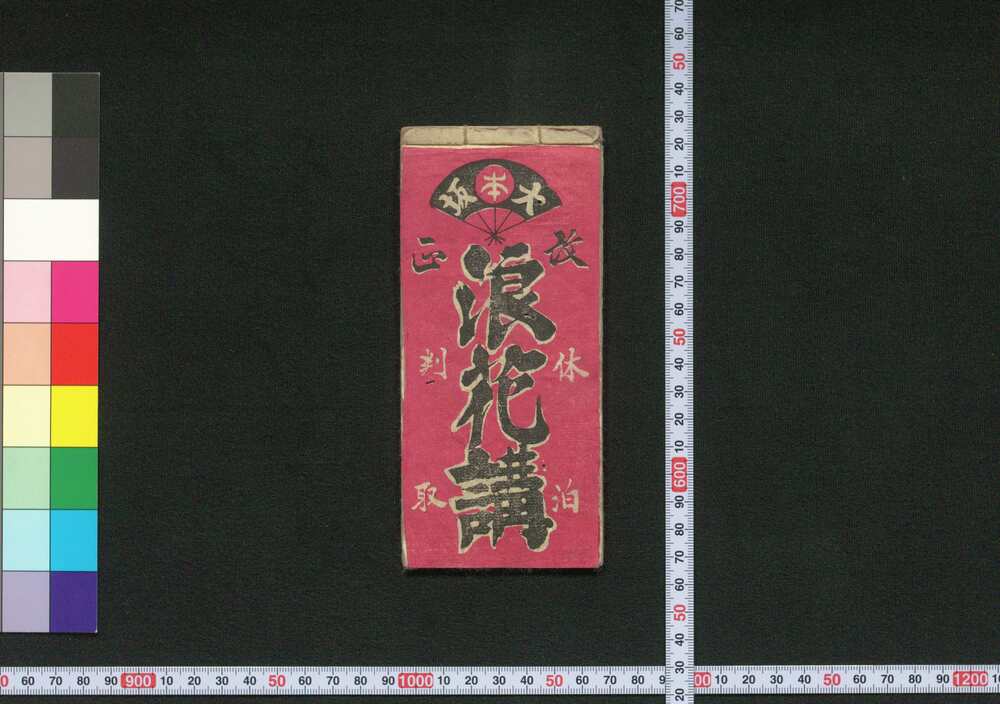 大本坂
改正
浪花講
休泊
判取
70 60 50 40 30 20 10 700 90 80 70 60 50 40 30 20 10 600 90 80 70 60 50 40 30 20
60 70 80 90 900 10 20 30 40 50 60 70 80 90 1000 10 20 30 40 50 60 70 80 00 10 20 30 40 50 60 70 80 90 1200